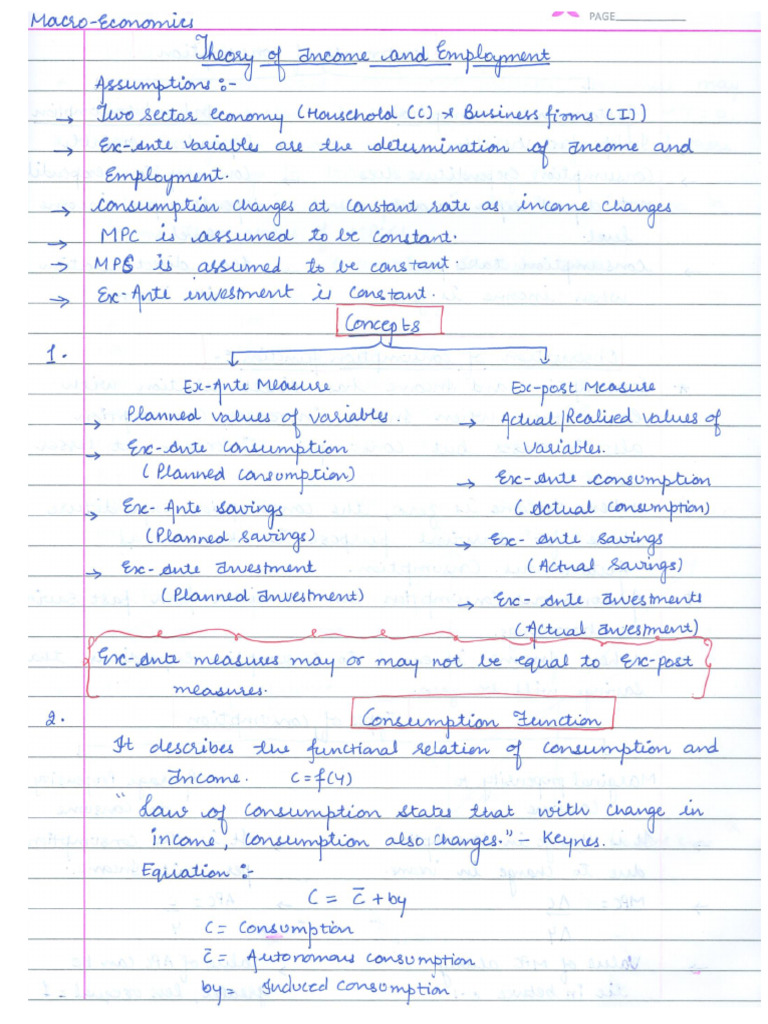 Macro-Economics
PAGE
Theory of Income and Employment
Assumptions :-
→ Two sector economy (Household (C) & Business firms (I))
→ Ex-Ante variables are the determination of Income and
Employment.
→ Consumption changes at constant rate as income changes
→ MPC is assumed to be constant.
→ MPS is assumed to be constant.
→ Ex-Ante investment is constant.
Concepts
1.
Ex-Ante Measure
→ Planned values of variables.
→ Ex-Ante Consumption
(Planned Consumption)
→ Ex-Ante Savings
(Planned Savings)
→ Ex-Ante Investment
(Planned Investment)
Ex-post Measure
→ Actual/Realised values of
Variables.
→ Ex-Ante Consumption
(Actual Consumption)
→ Ex-Ante Savings
(Actual Savings)
→ Ex-Ante Investments
(Actual Investment)
Ex-Ante measures may or may not be equal to Ex-post
measures.
2.
Consumption Function
It describes the functional relation of consumption and
Income. C=f(Y)
"Law of Consumption states that with change in
income, consumption also changes." - Keynes.
Equation :-
C = C̄ + by
C = Consumption
C̄ = Autonomous consumption
by = Induced Consumption